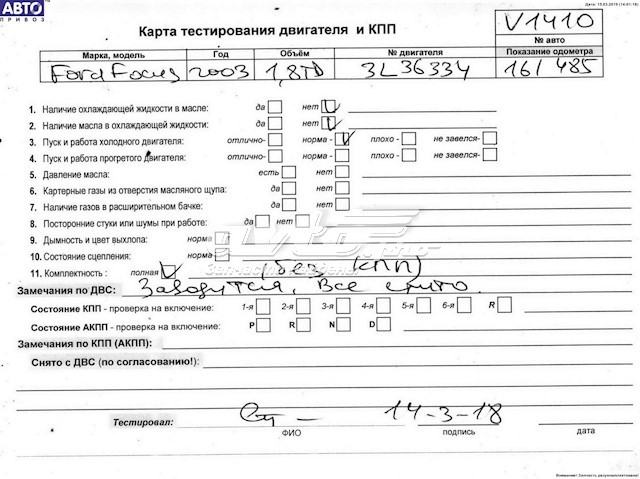 АВТО
ПРИВОЗ
Дата: 15.03.2019 (14:01:18)
Карта тестирования двигателя и КПП
V1410
№ авто
Марка, модель Год Объём № двигателя Показание одометра
Ford Focus 2003 1,8TD 3L36334 161 485
1. Наличие охлаждающей жидкости в масле: да нет V
2. Наличие масла в охлаждающей жидкости: да нет V
3. Пуск и работа холодного двигателя: отлично- норма - V плохо - не завелся-
4. Пуск и работа прогретого двигателя: отлично- норма - плохо - не завелся-
5. Давление масла: есть нет
6. Картерные газы из отверстия масляного щупа: да нет
7. Наличие газов в расширительном бачке: да нет
8. Посторонние стуки или шумы при работе: да нет
9. Дымность и цвет выхлопа: норма
10. Состояние сцепления: норма
11. Комплектность : полная V (без КПП)
Замечания по ДВС: Заводится, Все
Состояние КПП - проверка на включение: 1-я 2-я 3-я 4-я 5-я 6-я R
Состояние АКПП - проверка на включение: P R N D
Замечания по КПП (АКПП):
Снято с ДВС (по согласованию!):
Тестировал: 14-3-18
ФИО подпись дата